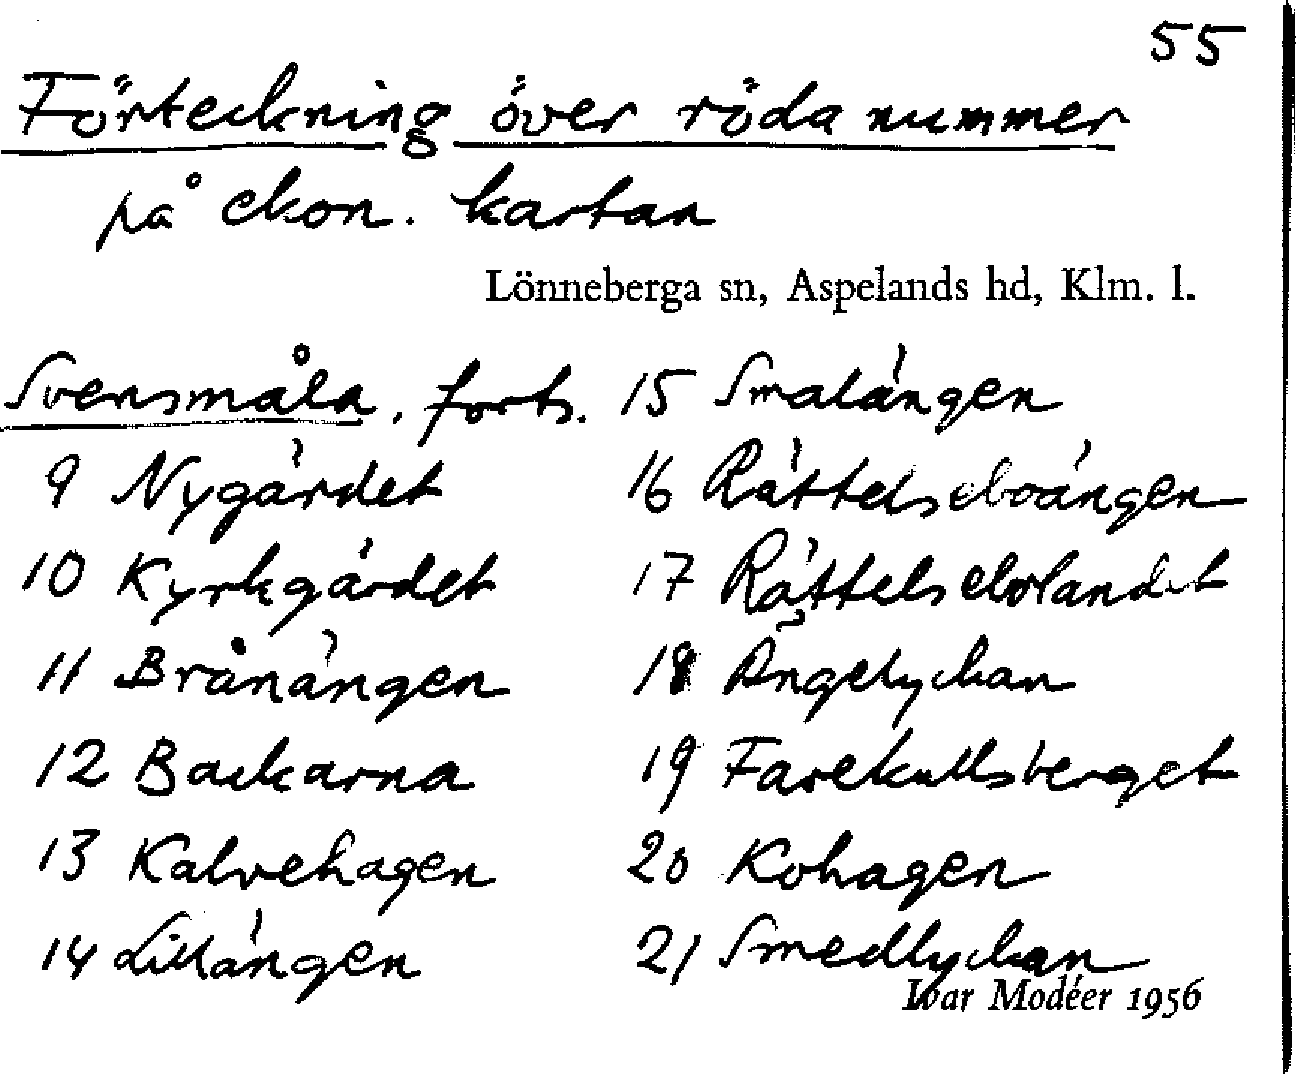 55
Förteckning över röda nummer
på ekon. kartan
Lönneberga sn, Aspelands hd, Klm. l.
Svensmåla, forts.
9 Nygärdet
10 Kyrkgärdet
11 Brånängen
12 Backarna
13 Kalvehagen
14 Lillängen
15 Smalängen
16 Rättelseboängen
17 Rättelsebolandet
18 Ängelyckan
19 Farekullsberget
20 Kohagen
21 Smedlyckan
Ivar Modéer 1956